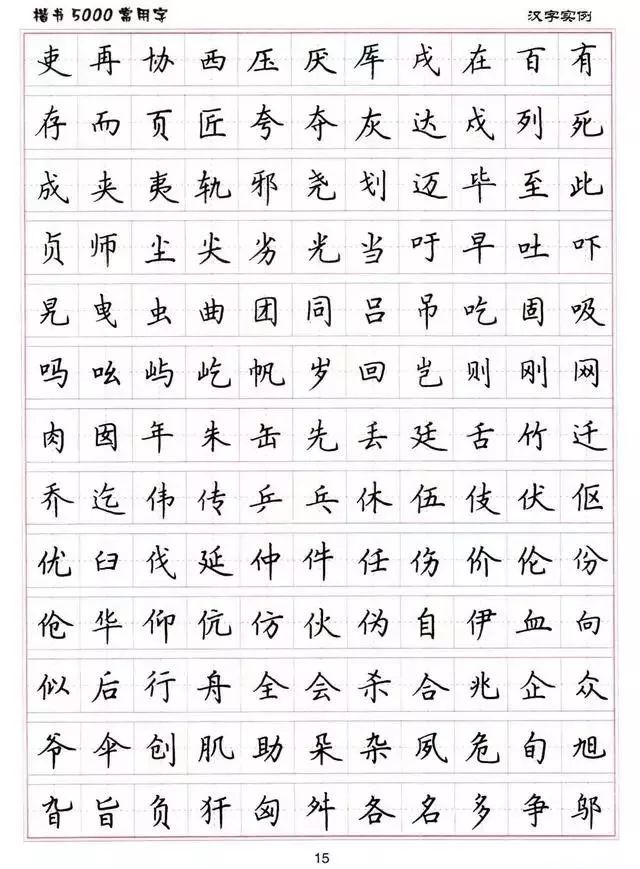 楷书5000常用字 汉字实例
吏再协西压厌厍戌在百有
存而页匠夸夺灰达戍列死
成夹夷轨邪尧划迈毕至此
贞师尘尖劣光当吁早吐吓
晃曳虫曲团同吕吊吃固吸
吗吆屿屹帆岁回岂则刚网
肉囡年朱缶先丢廷舌竹迁
乔迄伟传乒乓休伍伎伏伛
优臼伐延仲件任伤价伦份
伧华仰伉仿伙伪自伊血向
似后行舟全会杀合兆企众
爷伞创肌助朵杂夙危旬旭
旮旨负犴匈舛各名多争邬
15